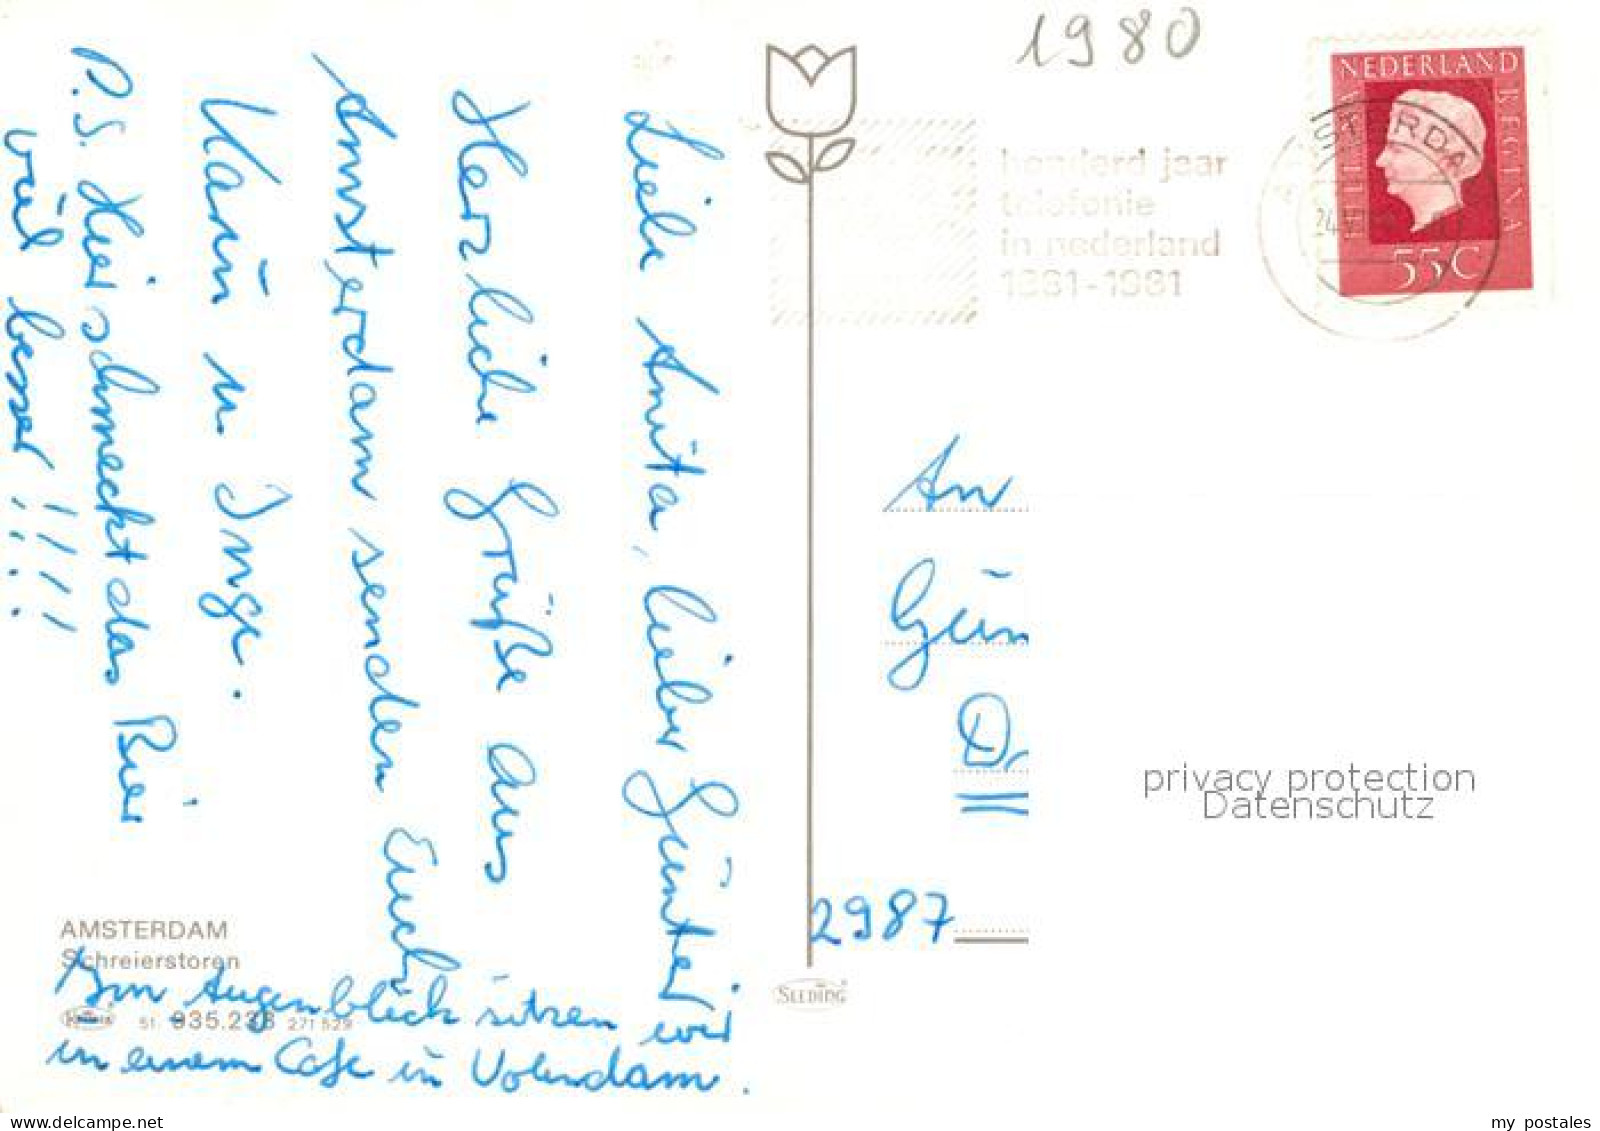 1980
NEDERLAND
REGINA
55c
honderd jaar
telefonie
in nederland
1881-1981
Liebe Anita, lieber Günter
Herzliche Grüße aus
Amsterdam senden Euch
u. Inge.
P.S. Hier schmeckt das Bier
viel besser !!!!!
Im Augenblick sitzen wir
in einem Cafe in Volendam.
AMSTERDAM
Schreierstoren
An
Gün
D
2987
SLEDING
privacy protection
Datenschutz
my postales